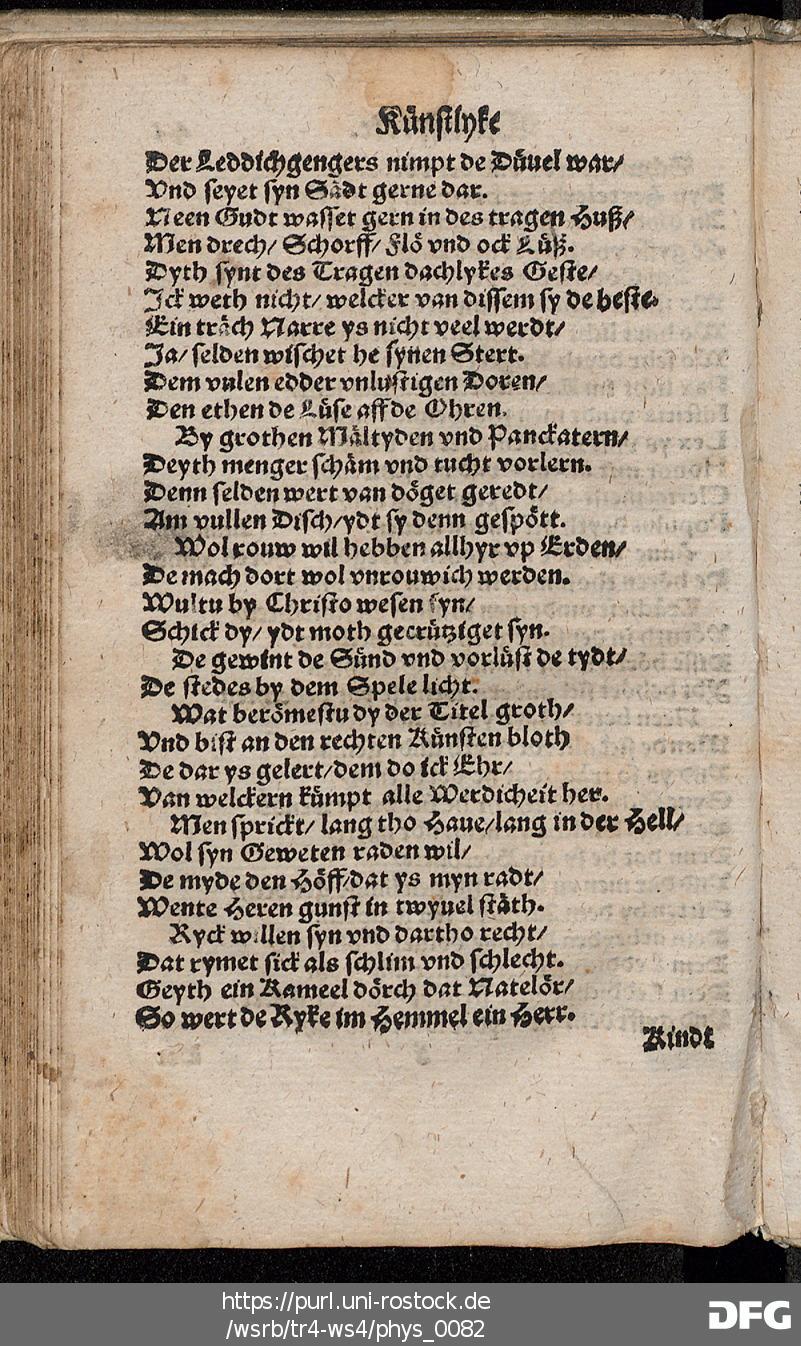 Künstlyke
Der Leddichgengers nimpt de Düuel war/
Vnd seyet syn Sådt gerne dar.
Neen Gudt wasset gern in des tragen Huß/
Men drech/ Schorff/ Flö vnd ock Lüß.
Dyth synt des Tragen dachlykes Geste/
Ick weth nicht/ welcker van dissem sy de beste.
Ein tråch Narre ys nicht veel werdt/
Ja/ selden wischet he synen Stert.
Dem vulen edder vnlustigen Doren/
Den ethen de Lüse aff de Ohren.
By grothen Måltyden vnd Panckatern/
Deyth menger schåm vnd tucht vorlern.
Denn selden wert van döget geredt/
Am vullen Disch/ydt sy denn gespött.
Wol rouw wil hebben allhyr vp Erden/
De mach dort wol vnrouwich werden.
Wultu by Christo wesen syn/
Schick dy/ ydt moth gecrütziget syn.
De gewint de Sünd vnd vorlüst de tydt/
De stedes by dem Spele licht.
Wat berömestu dy der Titel groth/
Vnd bist an den rechten Künsten bloth
De dar ys gelert/dem do ick Ehr/
Van welckern kümpt alle Werdicheit her.
Men sprickt/ lang tho Haue/lang in der Hell/
Wol syn Geweten raden wil/
De myde den Höff/dat ys myn radt/
Wente Heren gunst in twyuel ståth.
Ryck willen syn vnd dartho recht/
Dat rymet sick als schlim vnd schlecht.
Geyth ein Kameel dörch dat Natelör/
So wert de Ryke im Hemmel ein Herr.
Kindt
https://purl.uni-rostock.de
/wsrb/tr4-ws4/phys_0082
DFG